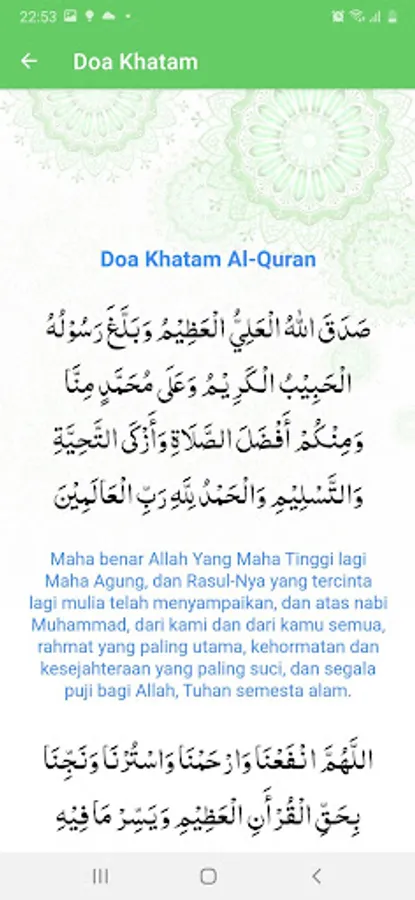 22:53
Doa Khatam
Doa Khatam Al-Quran
صَدَقَ اللهُ الْعَلِيُّ الْعَظِيْمُ وَبَلَّغَ رَسُوْلُهُ
الْحَبِيْبُ الْكَرِيْمُ وَعَلَى مُحَمَّدٍ مِنَّا
وَمِنْكُمْ أَفْضَلَ الصَّلَاةِ وَأَزْكَى التَّحِيَّةِ
وَالتَّسْلِيْمِ وَالْحَمْدُ لِلَّهِ رَبِّ الْعَالَمِيْنَ
Maha benar Allah Yang Maha Tinggi lagi
Maha Agung, dan Rasul-Nya yang tercinta
lagi mulia telah menyampaikan, dan atas nabi
Muhammad, dari kami dan dari kamu semua,
rahmat yang paling utama, kehormatan dan
kesejahteraan yang paling suci, dan segala
puji bagi Allah, Tuhan semesta alam.
اللَّهُمَّ انْفَعْنَا وَارْحَمْنَا وَاسْتُرْنَا وَنَجِّنَا
بِحَقِّ الْقُرْأَنِ الْعَظِيْمِ وَيَسِّرْ مَا فِيْهِ